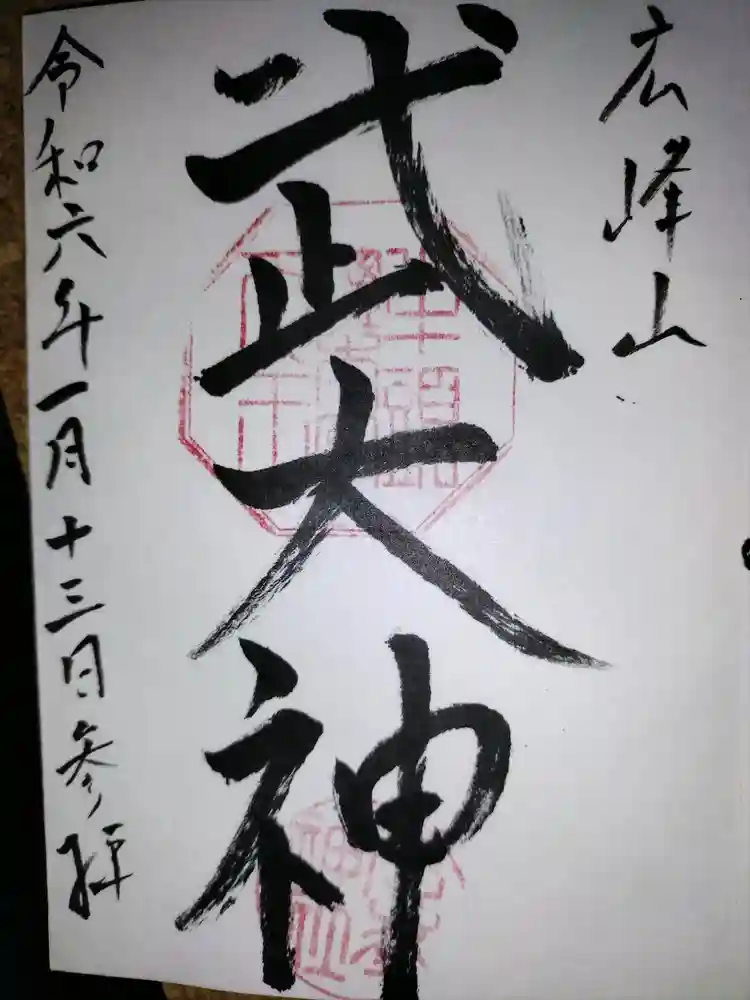 広峰山
武大神
令和六年一月十三日参拝